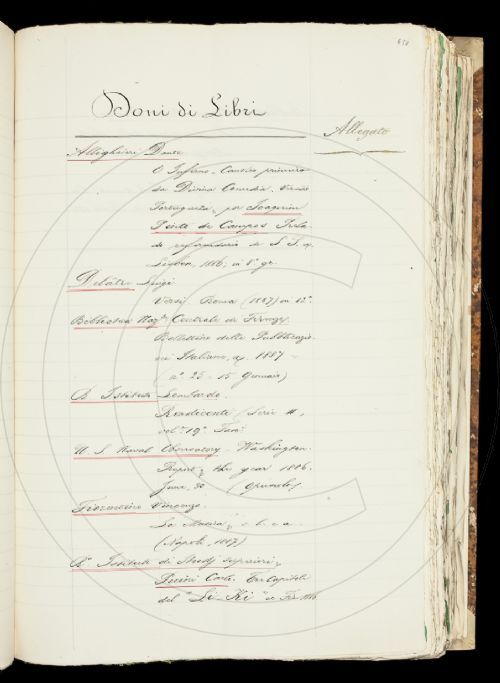 Doni di Libri
Allegato
Allighieri Dante
O Inferno, Cantico primeiro
da Divina Comedia. Versão
Portugueza, por Joaquim
Pinto de Campos
Lisboa, 1886, in 8° gr.
Delâtre Luigi
Versi. Roma (1887) in 12°.
Biblioteca Naz.le Centrale di Firenze.
Bollettino delle Pubblicazio-
ni Italiane, 1887
(n° 25 - 15 Gennaio)
R. Istituto Lombardo.
Rendiconti (Serie II,
vol. 19°
U. S. Naval Observatory. Washington.
Report, the year 1886.
June, 30 (Opuscolo)
Fiorentino Vincenzo.
La Musica,
(Napoli, 1887)
R.° Istituto di Studj superiori,
Puini Carlo. Tre Capitoli
del "Li-Ki"